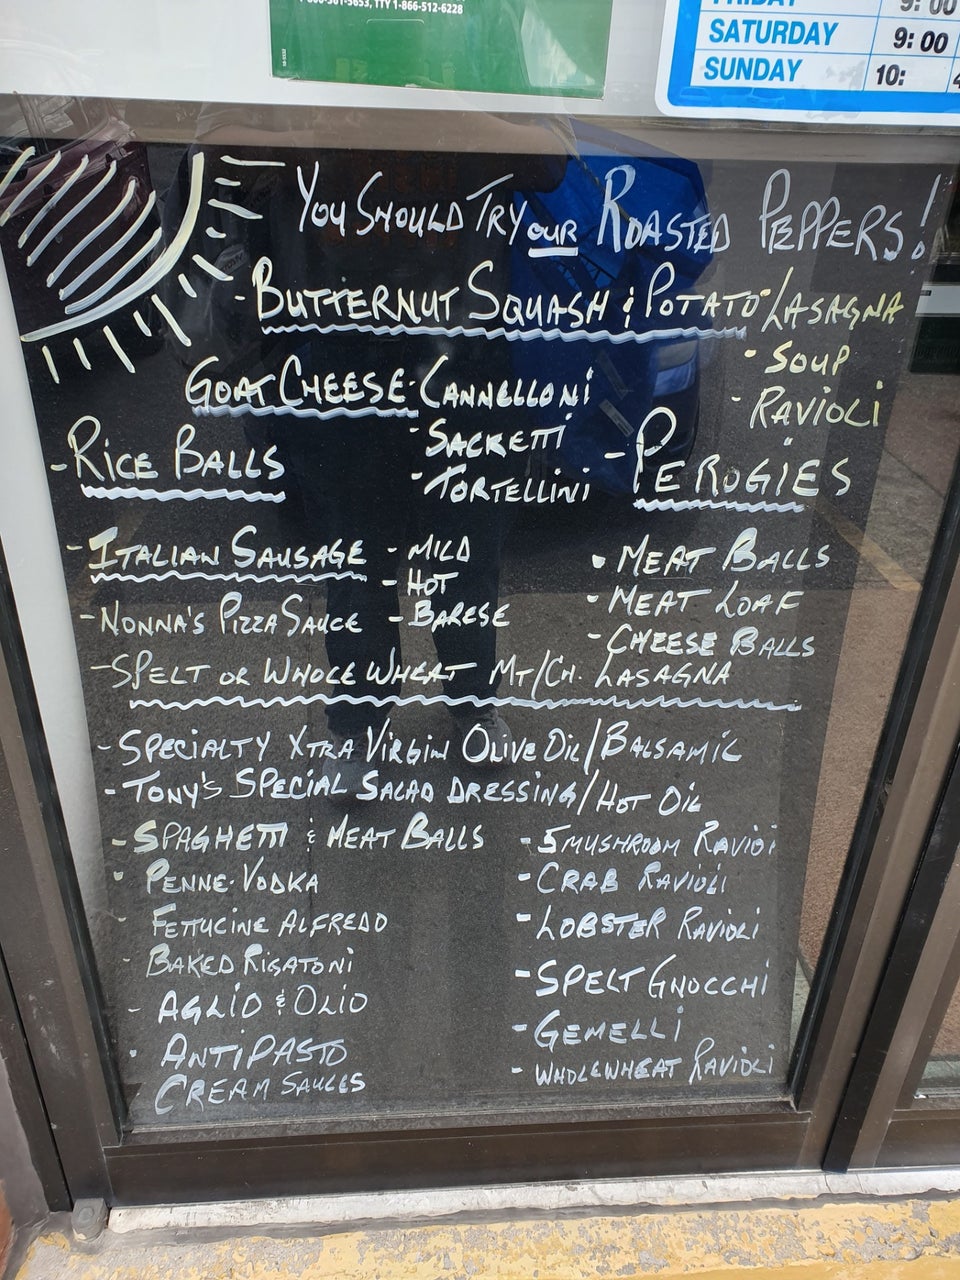 1-800-581-5653, TTY 1-866-512-6228
FRIDAY 9:00
SATURDAY 9:00
SUNDAY 10: 4
YOU SHOULD TRY OUR ROASTED PEPPERS!
- BUTTERNUT SQUASH & POTATO - LASAGNA
- SOUP
- RAVIOLI
GOAT CHEESE - CANNELLONI
- SACKETTI
- TORTELLINI
- RICE BALLS
- PEROGIES
- ITALIAN SAUSAGE - MILD
- HOT
- BARESE
- MEAT BALLS
- MEAT LOAF
- CHEESE BALLS
- NONNA'S PIZZA SAUCE
- SPELT OR WHOLE WHEAT MT/CH. LASAGNA
- SPECIALTY XTRA VIRGIN OLIVE OIL/BALSAMIC
- TONY'S SPECIAL SALAD DRESSING/HOT OIL
- SPAGHETTI & MEAT BALLS
- PENNE-VODKA
FETTUCINE ALFREDO
- BAKED RIGATONI
- AGLIO & OLIO
- ANTIPASTO
CREAM SAUCES
- 5 MUSHROOM RAVIOI
- CRAB RAVIOLI
- LOBSTER RAVIOLI
- SPELT GNOCCHI
- GEMELLI
- WHOLEWHEAT RAVIOLI